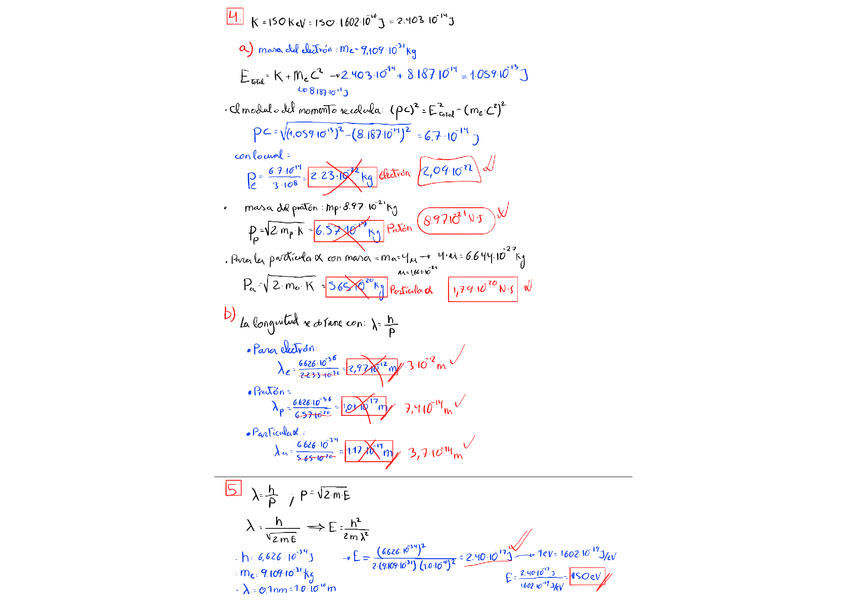 4. K = 150 KeV = 150·1.602·10⁻¹⁶ J = 2.403·10⁻¹⁴ J
a) masa del electrón: me = 9,109·10⁻³¹ kg
E_total = K + m_e C² → 2.403·10⁻¹⁴ + 8.187·10⁻¹⁴ = 1.059·10⁻¹³ J
· El modulo del momento se calcula: (pc)² = E²_total - (m_e·c²)²
pc = √(1,059·10⁻¹³)² - (8.187·10⁻¹⁴)² = 6.7·10⁻¹⁴ J
con lo cual =
P_e = 6.7·10⁻¹⁴ / 3·10⁸ = 2.23·10⁻²² kg electrón 2,09·10⁻²²
· masa del protón: mp = 8.97·10⁻²¹ kg
P_p = √2 m_p·K = 6.57·10⁻¹⁷ kg Protón 8.97·10⁻²¹ N·s
· Para la partícula α con masa = mα = 4μ → 4·μ = 6.644·10⁻²⁷ kg
Pα = √2·mα·K = 5.65·10⁻²⁰ kg Partícula α 1,79·10⁻²⁰ N·s
b) La longuitud se obtiene con: λ = h/p
• Para electrón:
λ_e = = 2,97·10⁻¹² m 3·10⁻¹² m
• Protón =
λ_p = = 1.01·10⁻¹⁷ m 7,4·10⁻¹⁴ m
• Partícula α:
λα = = 1.17·10⁻¹⁴ m 3,7·10⁻¹⁴ m
5. λ = h/p , P = √2·m·E
λ = h/√2mE ⟹ E = h²/2mλ²
· h = 6,626·10⁻³⁴ J → E = (6.626·10⁻³⁴)² / 2·(9.109·10⁻³¹)·(1.0·10⁻¹⁰)² = 2.40·10⁻¹⁷ J → 1eV = 1.602·10⁻¹⁹ J/eV
· me = 9.109·10⁻³¹ kg
E = 2.40·10⁻¹⁷ J / 1.602·10⁻¹⁹ J/eV = 150 eV
· λ = 0.1nm = 1.0·10⁻¹⁰ m